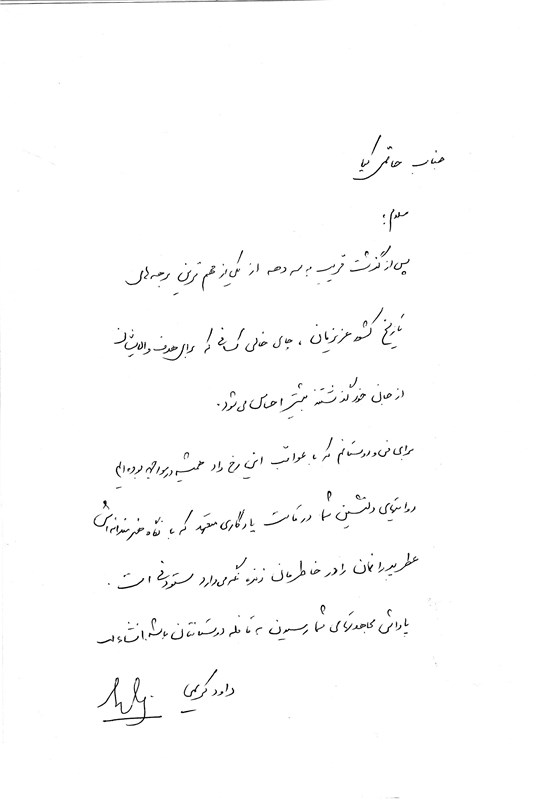 جناب حاتمی کیا
سلام؛
پس از گذشت قریب به سه دهه از یکی از مهم ترین برهه های
تاریخ کشور عزیزمان، جای خالی کسانی که برای هدف والایشان
از جان خود گذشتند بیشتر احساس می شود.
برای من و دوستانم که با عواقب این رخ داد همیشه در مواجهه بوده ایم
روایتهای دلنشین شما در قامت یادگاری متعهد که با نگاه هنرمندانه اش
عطر پدرانمان را در خاطرمان زنده نگه می دارد ستودنی است.
پاداش مجاهدتهای شما رسیدن به قافله دوستانتان باشد انشاءالله
داود کریمی